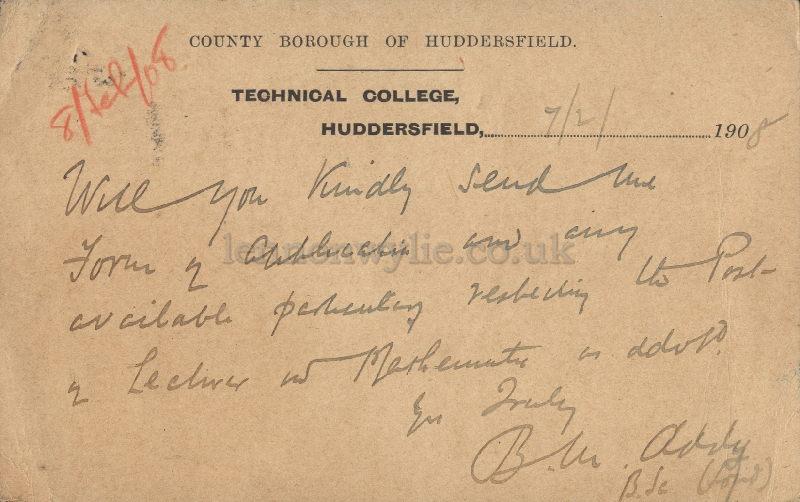 COUNTY BOROUGH OF HUDDERSFIELD.
8/Feb/08
TECHNICAL COLLEGE,
HUDDERSFIELD, 7/2/ 1908
Will you Kindly send me
Form of Application and any
available particulars respecting the Post
of Lecturer in Mathematics as advtd.
Yrs Truly
B. M. Addy
B.Sc (Lond)
lennonwylie.co.uk